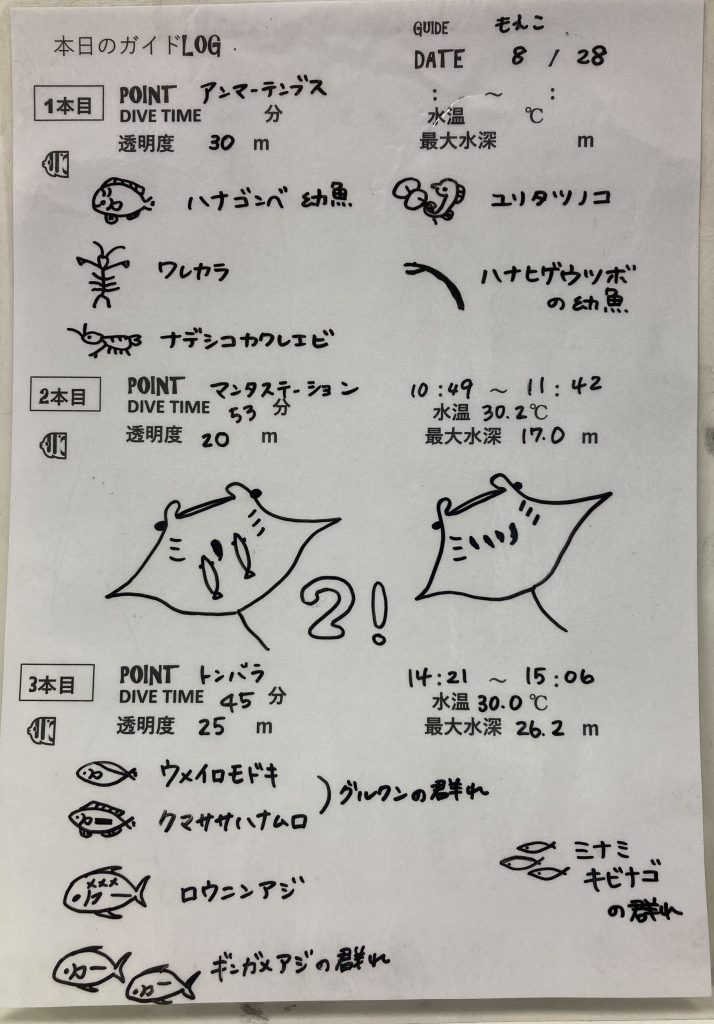 本日のガイドLOG
GUIDE もえこ
DATE 8 / 28
1本目
POINT アンマーテンブス
DIVE TIME 分
: ～ :
水温 ℃
透明度 30 m
最大水深 m
ハナゴンベ 幼魚
ユリタツノコ
ワレカラ
ハナヒゲウツボ
の幼魚
ナデシコカクレエビ
2本目
POINT マンタステーション
DIVE TIME 53 分
10:49 ～ 11:42
水温 30.2℃
透明度 20 m
最大水深 17.0 m
2!
3本目
POINT トンバラ
DIVE TIME 45 分
14:21 ～ 15:06
水温 30.0℃
透明度 25 m
最大水深 26.2 m
ウメイロモドキ
クマササハナムロ
グルクンの群れ
ロウニンアジ
ミナミ
キビナゴ
の群れ
ギンガメアジの群れ